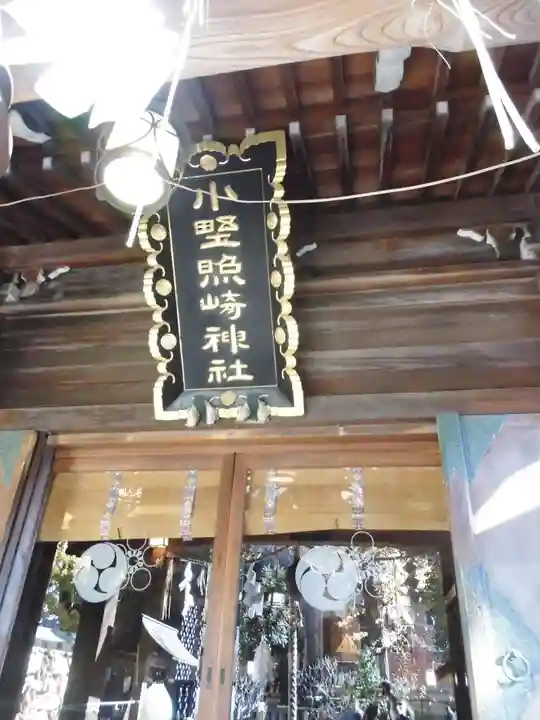 小野照崎神社